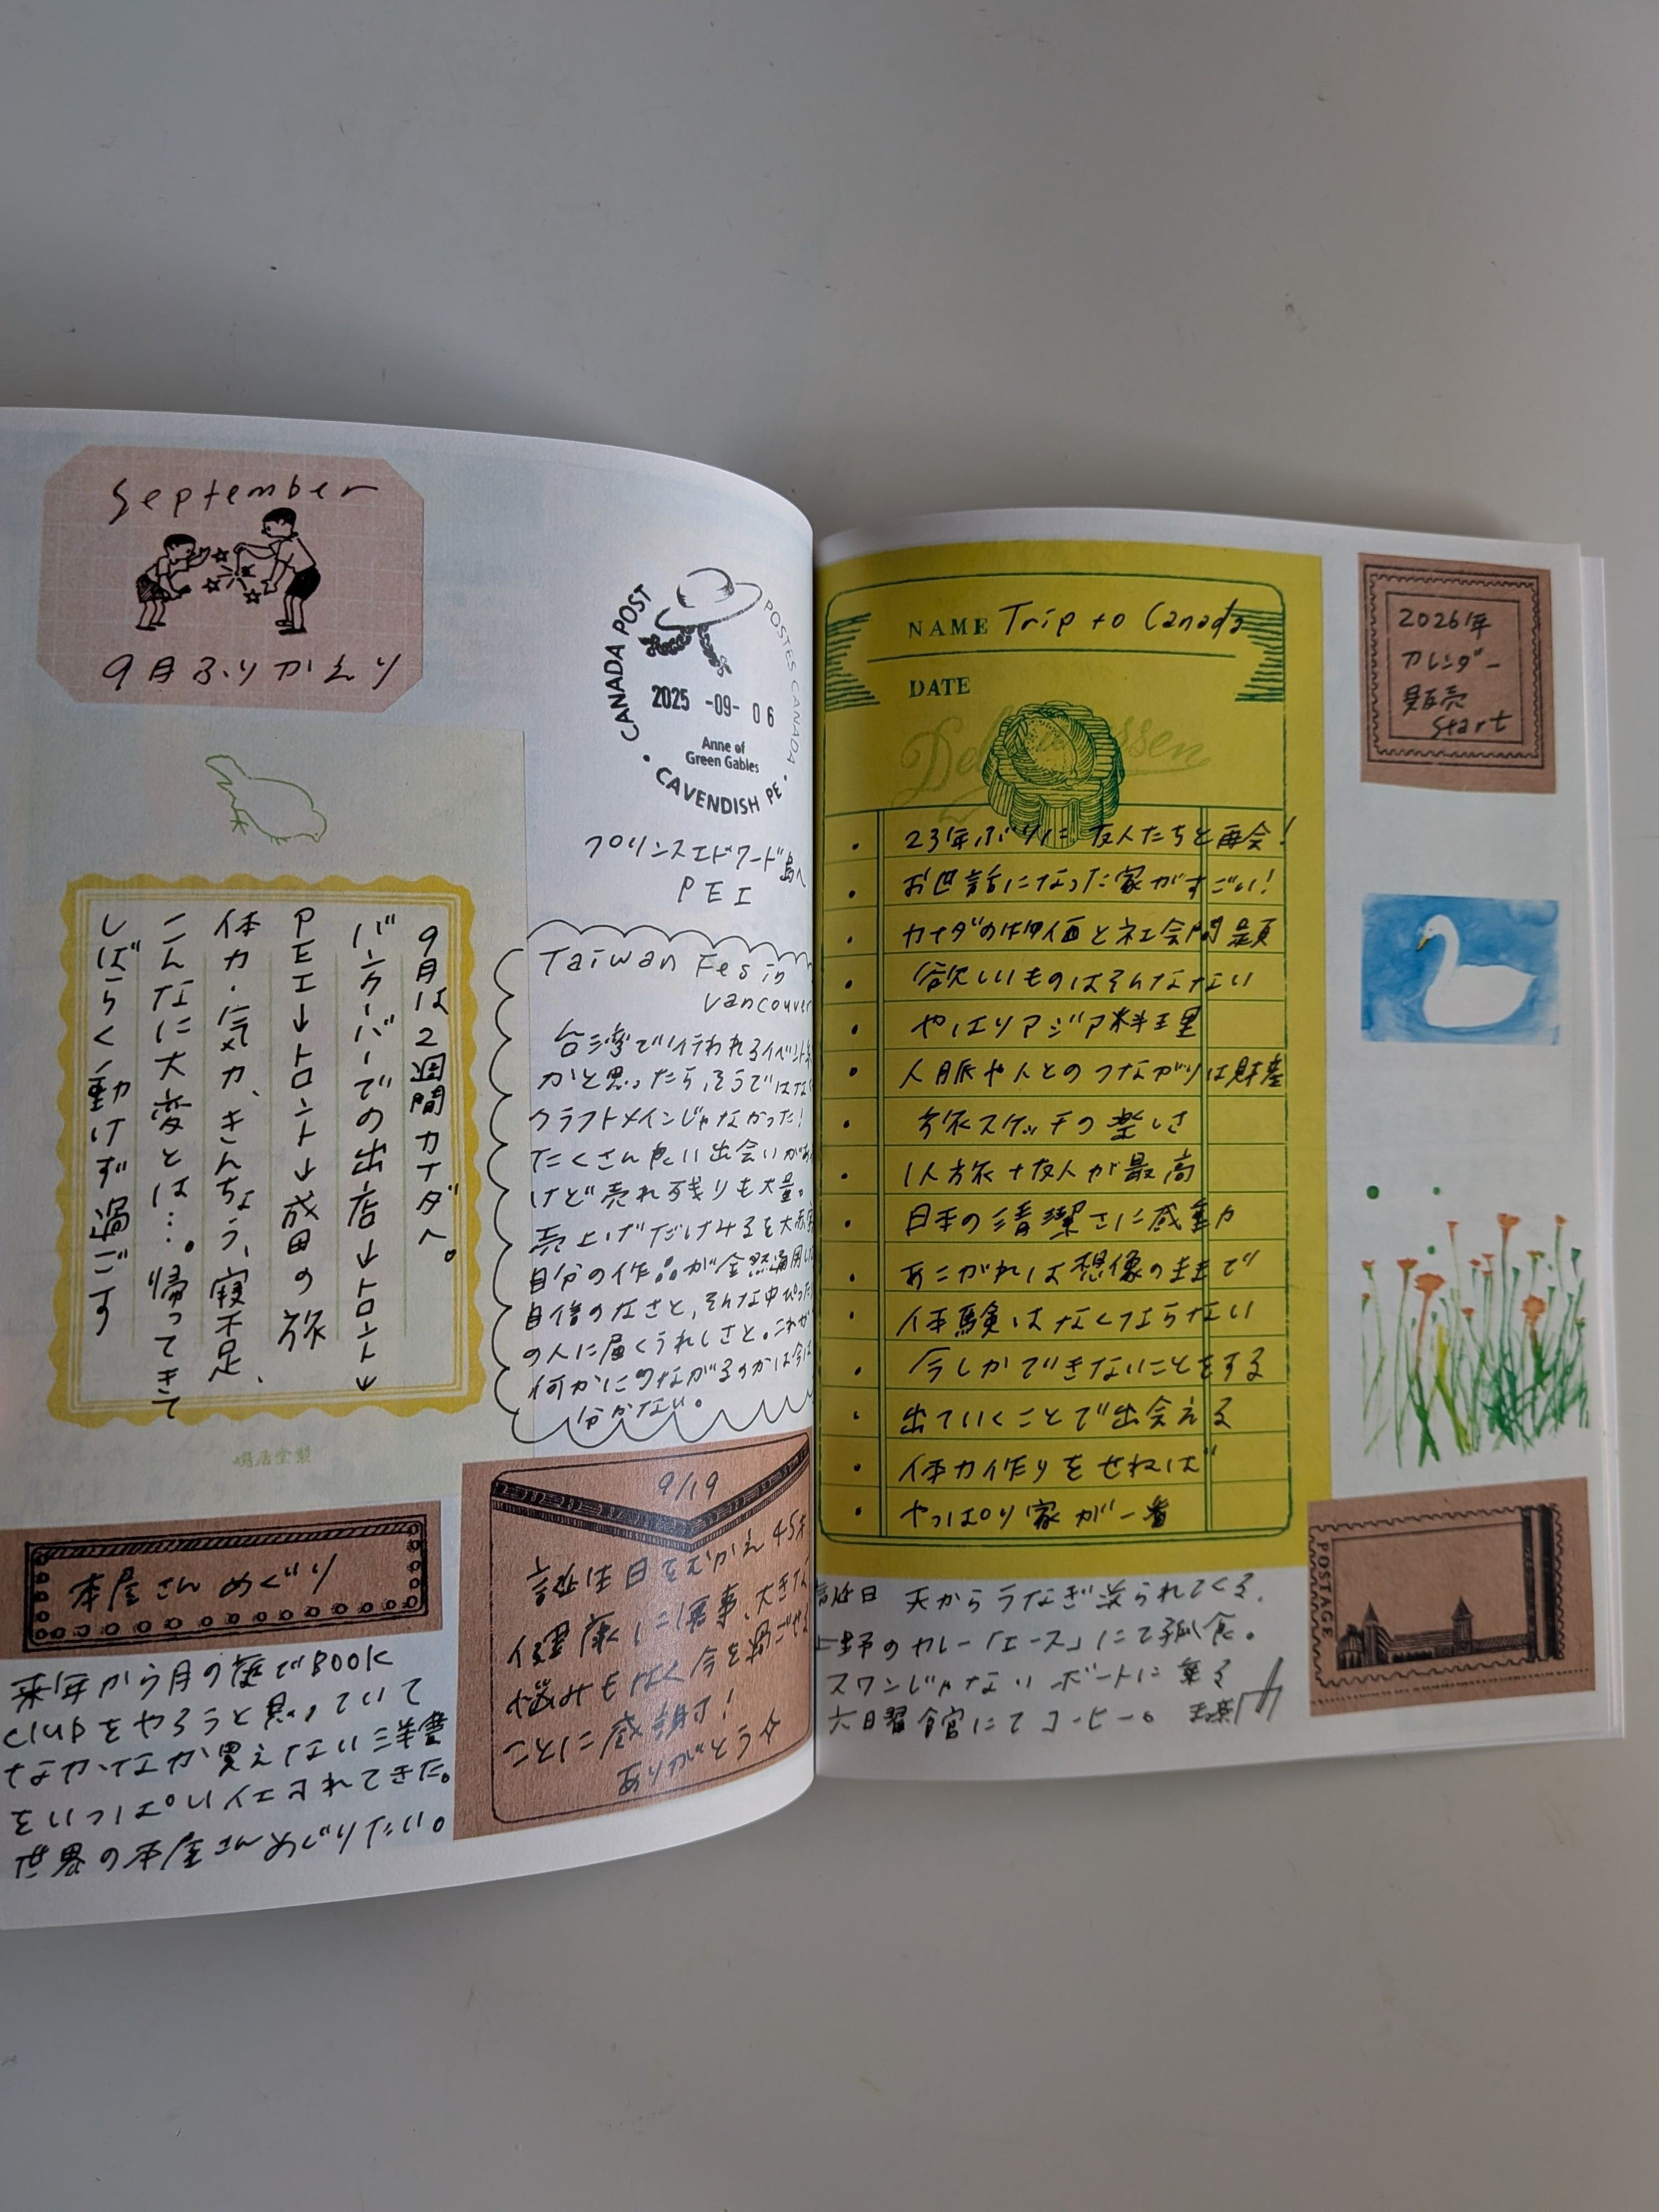 September
9月ふりかえり
CANADA POST
POSTES CANADA
2025-09-06
Anne of
Green Gables
CAVENDISH PE
プリンスエドワード島へ
PEI
9月は2週間カナダへ。
バンクーバーでの出店→トロント→
PEI→トロント→成田の旅
体力・気力、きんちょう、寝不足、
こんなに大変とは…。帰ってきて
しばらく動けず過ごす
鳩居堂製
Taiwan Fes in
Vancouver
台湾で行われるイベント
かと思ったら、そうではな
クラフトメインじゃなかった!
たくさん良い出会いがあ
けど売れ残りも大量。
売上げだけみると大赤字
自分の作品が全然通用し
自信のなさと、そんな中ぴった
の人に届くうれしさと。これが
何かにつながるのかは今は
分からない。
本屋さんめぐり
来年から月の庭でBOOK
clubをやろうと思っていて
なかなか買えない洋書
をいっぱい仕入れてきた。
世界の本屋さんめぐりしたい。
9/19
誕生日をむかえ45才
無事、大きな
感謝!
NAME Trip to Canada
DATE
Delicatessen
・23年ぶりに友人たちと再会!
・お世話になった家がすごい!
・カナダの物価と社会問題
・欲しいものはそんなない
・やはりアジア料理
・人脈や人とのつながりは財産
・旅スケッチの楽しさ
・1人旅+友人が最高
・日本の清潔さに感動
・あこがれは想像のままで
・体験はなくならない
・今しかできないことをする
・出ていくことで出会える
・体力作りをせねば
・やっぱり家が一番
天からうなぎ送られてくる。
上野のカレー「エース」にて孤食。
スワンじゃないボートに乗る
六曜館にてコーヒー。
2026年
カレンダー
販売
start
POSTAGE